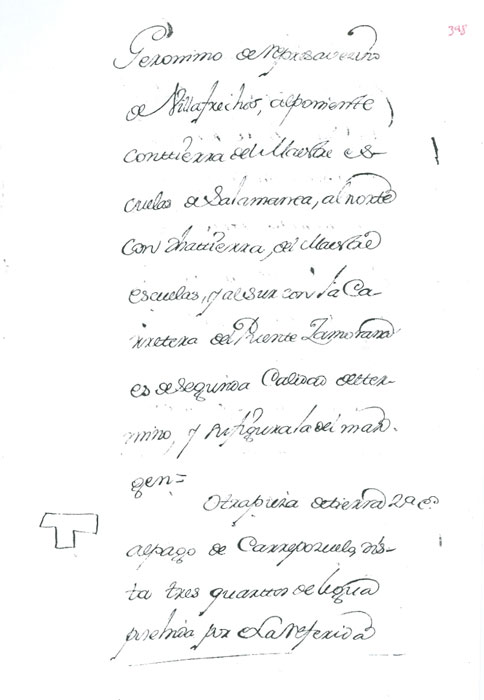 348
Geronimo de Nexos avezino
de Villafrechos, al poniente
con tierra del Maestre es-
cuelas de Salamanca, al norte
con dha tierra, del Maestre
escuelas, y al sur con la Ca-
rretera del Puente Zamorana
es de segunda Calidad de ter-
mino, y su figura la del mar-
gen=
Otra pieza de tierra 2ª c.
al pago de Carreporuelo, dis-
ta tres quartos de legua
posehida por la Referida